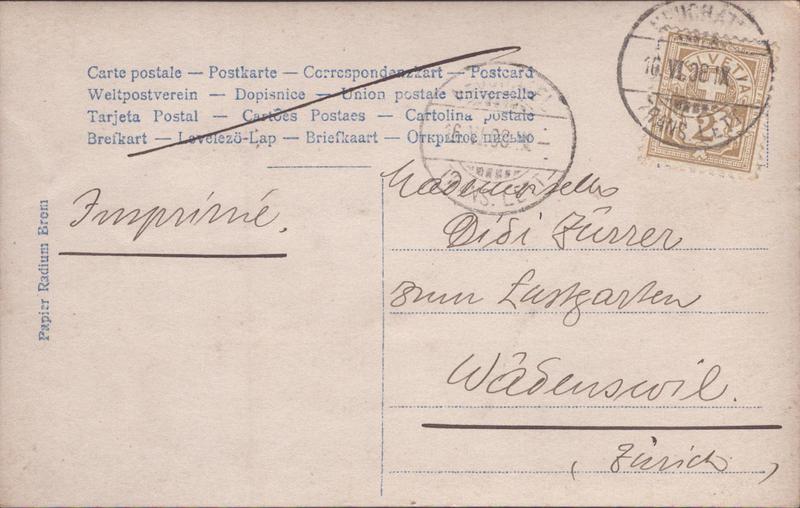 Carte postale — Postkarte — Correspondenzkart — Postcard
Weltpostverein — Dopisnice — Union postale universelle
Tarjeta Postal — Cartões Postaes — Cartolina postale
Brefkart — Levelezö-Lap — Briefkaart — Открытое письмо
HELVETIA
2
16 VI 08 IX
TRANS. LET.
Imprimé.
Mademoiselle
Didi Zürrer
zum Lustgarten
Wädenswil.
(Zürich)
Papier Radium Brom